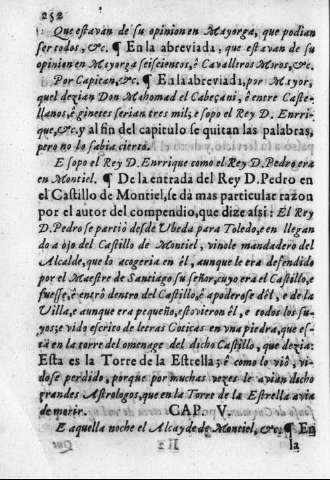 252
Que estavan de su opinion en Mayorga, que podian
ser todos, &c. ¶ En la abreviada, que estavan de su
opinion en Meyorga seiscientos, è Cavalleros Moros, &c.
Por Capitan, &c. ¶ En la abreviada, por Mayor,
quel dezian Don Mahomad el Cabeçani, è entre Caste-
llanos, è ginetes serian tres mil, e sopo el Rey D. Enrri-
que, &c. y al fin del capitulo se quitan las palabras,
pero no lo sabia cierto.
E sopo el Rey D. Enrrique como el Rey D. Pedro era
en Montiel. ¶ De la entrada del Rey D. Pedro en
el Castillo de Montiel, se dà mas particular razon
por el autor del compendio, que dize assi: El Rey
D. Pedro se partiò desde Ubeda para Toledo, e en llegan
do a ojo del Castillo de Montiel, vinole mandadero del
Alcalde, que lo acogeria en èl, aunque le era defendido
por el Maestre de Santiago su señor, cuyo era el Castillo, e
fuesse, è entrò dentro del Castillo, è apoderose dèl, e de la
Villa, e aunque era pequeño, estovieron èl, e todos los su-
yos; è vido escrito de letras Goticas en vna piedra, que es-
tà en la torre del omenage del dicho Castillo, que dezia:
Esta es la Torre de la Estrella; è como lo viò, vi-
dose perdido, porque por muchas vezes le avian dicho
grandes Astrologos, que en la Torre de la Estrella avia
de morir. CAP. V.
E aquella noche el Alcayde de Montiel, &c. ¶ En
la